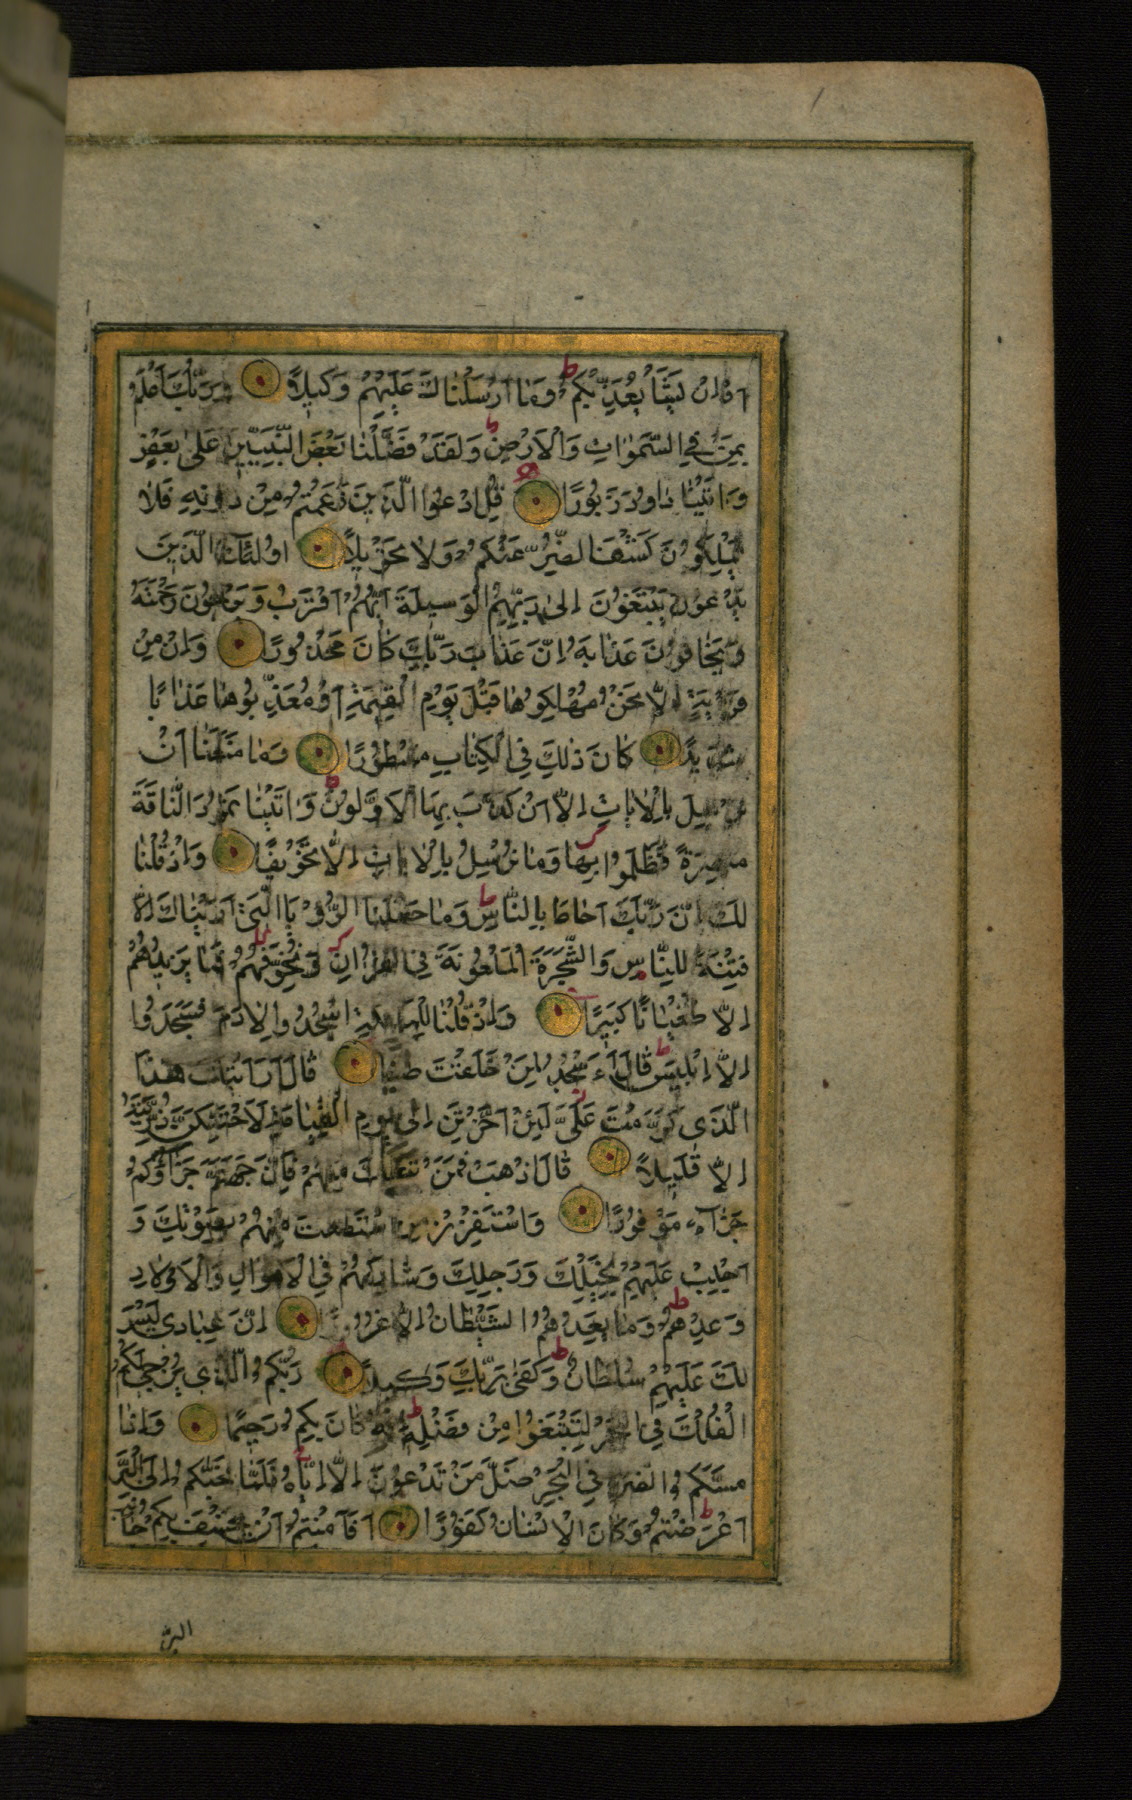 اَوْ اِنْ يَشَأْ يُعَذِّبْكُمْ ط وَمٰا اَرْسَلْنٰاكَ عَلَيْهِمْ وَكيلاً وَرَبُّكَ اَعْلَمُ
بِمَنْ فِي السَّمٰوٰاتِ وَالْاَرْضِ ط وَلَقَدْ فَضَّلْنٰا بَعْضَ النَّبِيّينَ عَلىٰ بَعْضٍ
وَاٰتَيْنٰا دٰاوُدَ زَبُورًا قُلِ ادْعُوا الَّذينَ زَعَمْتُمْ مِنْ دُونِهِ فَلاٰ
يَمْلِكُونَ كَشْفَ الضُّرِّ عَنْكُمْ وَلاٰ تَحْويلاً اُولٰئِكَ الَّذينَ
يَدْعُونَ يَبْتَغُونَ اِلىٰ رَبِّهِمُ الْوَسيلَةَ اَيُّهُمْ اَقْرَبُ وَيَرْجُونَ رَحْمَتَهُ
وَيَخٰافُونَ عَذٰابَهُ اِنَّ عَذٰابَ رَبِّكَ كٰانَ مَحْذُورًا وَاِنْ مِنْ
قَرْيَةٍ اِلاّٰ نَحْنُ مُهْلِكُوهٰا قَبْلَ يَوْمِ الْقِيٰمَةِ اَوْ مُعَذِّبُوهٰا عَذٰابًا
شَديدًا كٰانَ ذٰلِكَ فِي الْكِتٰابِ مَسْطُورًا وَمٰا مَنَعَنٰا اَنْ
نُرْسِلَ بِالْاٰيٰاتِ اِلاّٰ اَنْ كَذَّبَ بِهَا الْاَوَّلُونَ ط وَاٰتَيْنٰا ثَمُودَ النّٰاقَةَ
مُبْصِرَةً فَظَلَمُوا بِهٰا وَمٰا نُرْسِلُ بِالْاٰيٰاتِ اِلاّٰ تَخْويفًا وَاِذْ قُلْنٰا
لَكَ اِنَّ رَبَّكَ اَحٰاطَ بِالنّٰاسِ ط وَمٰا جَعَلْنَا الرُّؤْيَا الَّتي اَرَيْنٰاكَ اِلاّٰ
فِتْنَةً لِلنّٰاسِ وَالشَّجَرَةَ الْمَلْعُونَةَ فِي الْقُرْاٰنِ وَنُخَوِّفُهُمْ فَمٰا يَزيدُهُمْ
اِلاّٰ طُغْيٰانًا كَبيرًا وَاِذْ قُلْنٰا لِلْمَلٰئِكَةِ اسْجُدُوا لِاٰدَمَ فَسَجَدُوا
اِلاّٰ اِبْليسَ ط قٰالَ ءَاَسْجُدُ لِمَنْ خَلَقْتَ طينًا قٰالَ اَرَاَيْتَكَ هٰذَا
الَّذي كَرَّمْتَ عَلَيَّ لَئِنْ اَخَّرْتَنِ اِلىٰ يَوْمِ الْقِيٰامَةِ لَاَحْتَنِكَنَّ ذُرِّيَّتَهُ
اِلاّٰ قَليلاً قٰالَ اذْهَبْ فَمَنْ تَبِعَكَ مِنْهُمْ فَاِنَّ جَهَنَّمَ جَزٰاؤُكُمْ
جَزٰاءً مَوْفُورًا وَاسْتَفْزِزْ مَنِ اسْتَطَعْتَ مِنْهُمْ بِصَوْتِكَ وَ
اَجْلِبْ عَلَيْهِمْ بِخَيْلِكَ وَرَجِلِكَ وَشٰارِكْهُمْ فِي الْاَمْوٰالِ وَالْاَوْلاٰدِ
وَعِدْهُمْ ط وَمٰا يَعِدُهُمُ الشَّيْطٰانُ اِلاّٰ غُرُورًا اِنَّ عِبٰادي لَيْسَ
لَكَ عَلَيْهِمْ سُلْطٰانٌ ط وَكَفىٰ بِرَبِّكَ وَكيلاً رَبُّكُمُ الَّذي يُزْجي لَكُمُ
الْفُلْكَ فِي الْبَحْرِ لِتَبْتَغُوا مِنْ فَضْلِهِ ط اِنَّهُ كٰانَ بِكُمْ رَحيمًا وَاِذٰا
مَسَّكُمُ الضُّرُّ فِي الْبَحْرِ ضَلَّ مَنْ تَدْعُونَ اِلاّٰ اِيّٰاهُ فَلَمّٰا نَجّٰيكُمْ اِلَى الْبَرِّ
اَعْرَضْتُمْ ط وَكٰانَ الْاِنْسٰانُ كَفُورًا اَفَاَمِنْتُمْ اَنْ يَخْسِفَ بِكُمْ جٰانِبَ
البرّ